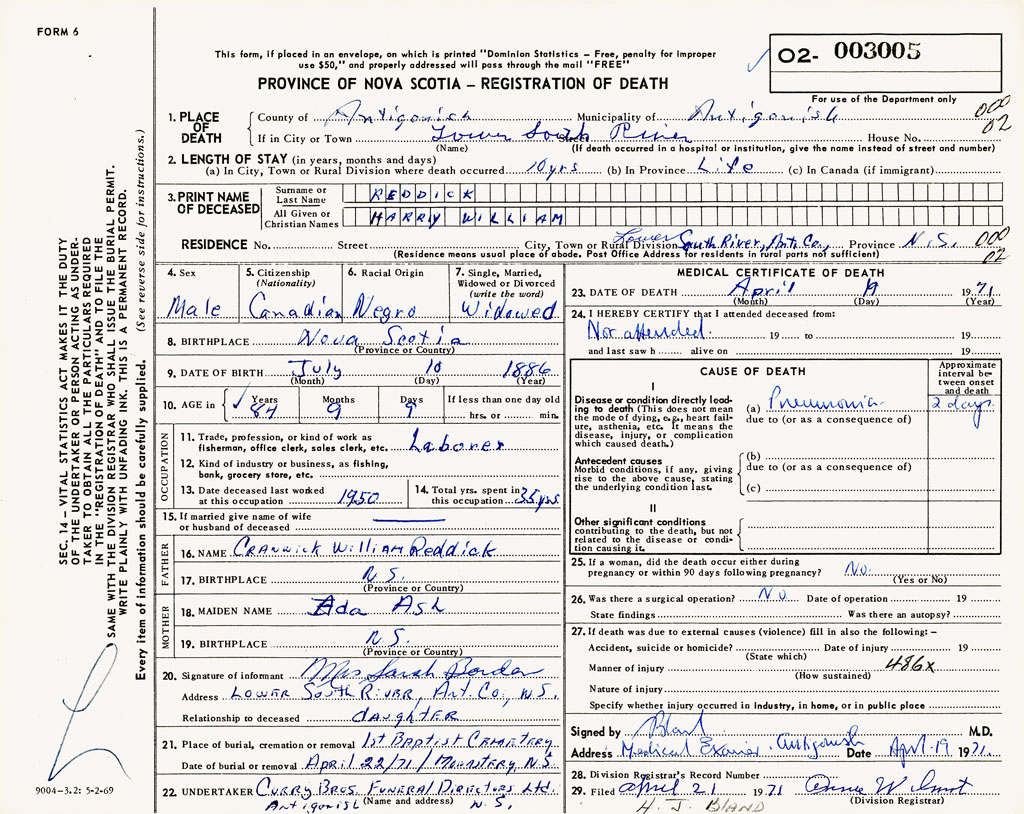 FORM 6
This form, if placed in an envelope, on which is printed "Dominion Statistics – Free, penalty for improper
use $50," and properly addressed will pass through the mail "FREE"
O2- 003005
PROVINCE OF NOVA SCOTIA – REGISTRATION OF DEATH
For use of the Department only
1. PLACE OF DEATH
County of Antigonish Municipality of Antigonish 000
If in City or Town Lower South River House No. 02
(Name) (If death occurred in a hospital or institution, give the name instead of street and number)
2. LENGTH OF STAY (in years, months and days)
(a) In City, Town or Rural Division where death occurred 10 yrs (b) In Province Life (c) In Canada (if immigrant)
3. PRINT NAME OF DECEASED
Surname or Last Name REDDICK
All Given or Christian Names HARRY WILLIAM
RESIDENCE No. Street City, Town or Rural Division Lower South River, Ant. Co., Province N.S. 000
(Residence means usual place of abode. Post Office Address for residents in rural parts not sufficient) 02
4. Sex
Male
5. Citizenship (Nationality)
Canadian
6. Racial Origin
Negro
7. Single, Married, Widowed or Divorced (write the word)
Widowed
8. BIRTHPLACE Nova Scotia
(Province or Country)
9. DATE OF BIRTH July 10 1886
(Month) (Day) (Year)
10. AGE in Years Months Days If less than one day old
84 9 9 hrs. or min.
OCCUPATION
11. Trade, profession, or kind of work as
fisherman, office clerk, sales clerk, etc. Laborer
12. Kind of industry or business, as fishing,
bank, grocery store, etc.
13. Date deceased last worked
at this occupation 1950
14. Total yrs. spent in
this occupation 35 yrs
15. If married give name of wife
or husband of deceased
FATHER
16. NAME William Reddick
17. BIRTHPLACE N.S.
(Province or Country)
MOTHER
18. MAIDEN NAME Ada Ash
19. BIRTHPLACE N.S.
(Province or Country)
20. Signature of informant Mrs Sarah Borden
Address LOWER SOUTH RIVER, Ant. Co., N.S.
Relationship to deceased daughter
21. Place of burial, cremation or removal 1st Baptist Cemetery
Date of burial or removal April 22/71 / Monastery, N.S.
22. UNDERTAKER Curry Bros. Funeral Directors Ltd.
(Name and address) Antigonish N.S.
MEDICAL CERTIFICATE OF DEATH
23. DATE OF DEATH April 19 1971
(Month) (Day) (Year)
24. I HEREBY CERTIFY that I attended deceased from:
Not attended 19 to 19
and last saw h alive on 19
CAUSE OF DEATH
Approximate interval between onset and death
I
Disease or condition directly leading to death (This does not mean the mode of dying, e.g., heart failure, asthenia, etc. It means the disease, injury, or complication which caused death.)
(a) Pneumonia 2 days
due to (or as a consequence of)
Antecedent causes
Morbid conditions, if any, giving rise to the above cause, stating the underlying condition last.
(b)
due to (or as a consequence of)
(c)
II
Other significant conditions
contributing to the death, but not related to the disease or condition causing it.
25. If a woman, did the death occur either during
pregnancy or within 90 days following pregnancy? No.
(Yes or No)
26. Was there a surgical operation? No Date of operation 19
State findings Was there an autopsy?
27. If death was due to external causes (violence) fill in also the following: –
Accident, suicide or homicide? Date of injury 19
(State which)
Manner of injury 486x
(How sustained)
Nature of injury
Specify whether injury occurred in industry, in home, or in public place
Signed by Bland M.D.
Address Medical Examiner Antigonish Date Apr 19 1971
28. Division Registrar's Record Number
29. Filed April 21 1971
(Division Registrar)
H. J. BLAND
SEC. 14 – VITAL STATISTICS ACT MAKES IT THE DUTY
OF THE UNDERTAKER OR PERSON ACTING AS UNDER-
TAKER TO OBTAIN ALL THE PARTICULARS REQUIRED
IN THE "REGISTRATION OF DEATH" AND TO FILE THE
SAME WITH THE DIVISION REGISTRAR WHO SHALL ISSUE THE BURIAL PERMIT.
WRITE PLAINLY WITH UNFADING INK. THIS IS A PERMANENT RECORD.
Every item of information should be carefully supplied. (See reverse side for instructions.)
9004–3.2: 5-2-69